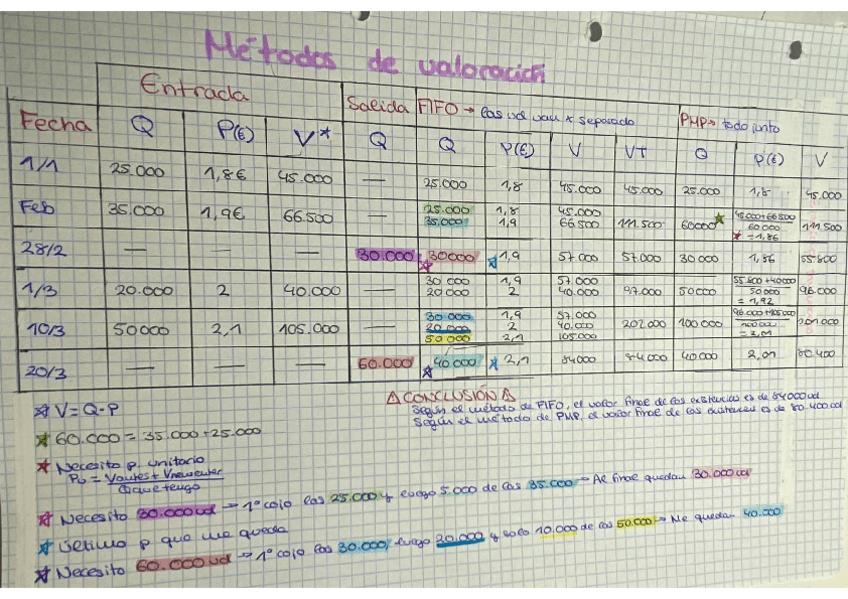 Métodos de valoración
Entrada Salida FIFO → las ud van x separado PMP → todo junto
Fecha Q P(€) V* Q Q P(€) V VT Q P(€) V
1/1 25.000 1,8€ 45.000 — 25.000 1,8 45.000 45.000 25.000 1,8 45.000
Feb 35.000 1,9€ 66.500 — 25.000 1,8 45.000 111.500 60000 45.000+66.500 111.500
35.000 1,9 66.500 60.000
= 1,86
28/2 — — — 30.000 30000 1,9 57.000 57.000 30000 1,86 55.800
1/3 20.000 2 40.000 — 30000 1,9 57.000 97.000 50000 55.800+40000 96.000
20000 2 40.000 50000
= 1,92
10/3 50000 2,1 105.000 — 30.000 1,9 57.000 202.000 100.000 96.000+105000 201.000
20.000 2 40.000
50000 2,1 105.000 = 2,01
20/3 — — — 60.000 40000 2,1 84000 84000 40000 2,01 80.400
⚠ CONCLUSIÓN ⚠
Según el método de FIFO, el valor final de las existencias es de 84000ud
Según el método de PMP, el valor final de las es de 80.400ud
V = Q·P
60.000 = 35.000+25.000
Necesito p. unitario
Vantes + Vnewenter
Q que tengo
Necesito 30.000ud → 1º cojo las 25.000 y luego 5.000 de las 35.000 → Al final quedan 30.000ud
Último p que me queda
Necesito 60.000ud → 1º cojo las 30.000, luego 20.000 y solo 10.000 de las 50.000 → Me quedan 40.000